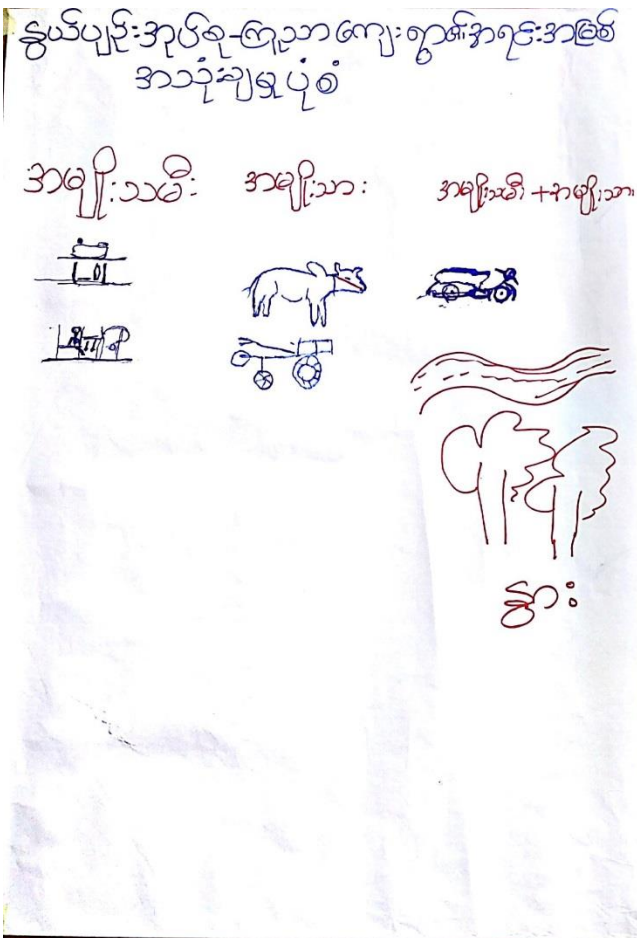 နွယ်ပျဉ်းအုပ်စု-ကြူသာကျေးရွာ၏အရင်းအမြစ်
အသုံးချမှုပုံစံ
အမျိုးသမီး အမျိုးသား အမျိုးသမီး + အမျိုးသား
နွား